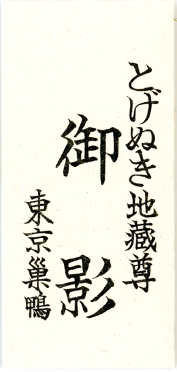 とげぬき地藏尊
御影
東京巢鴨